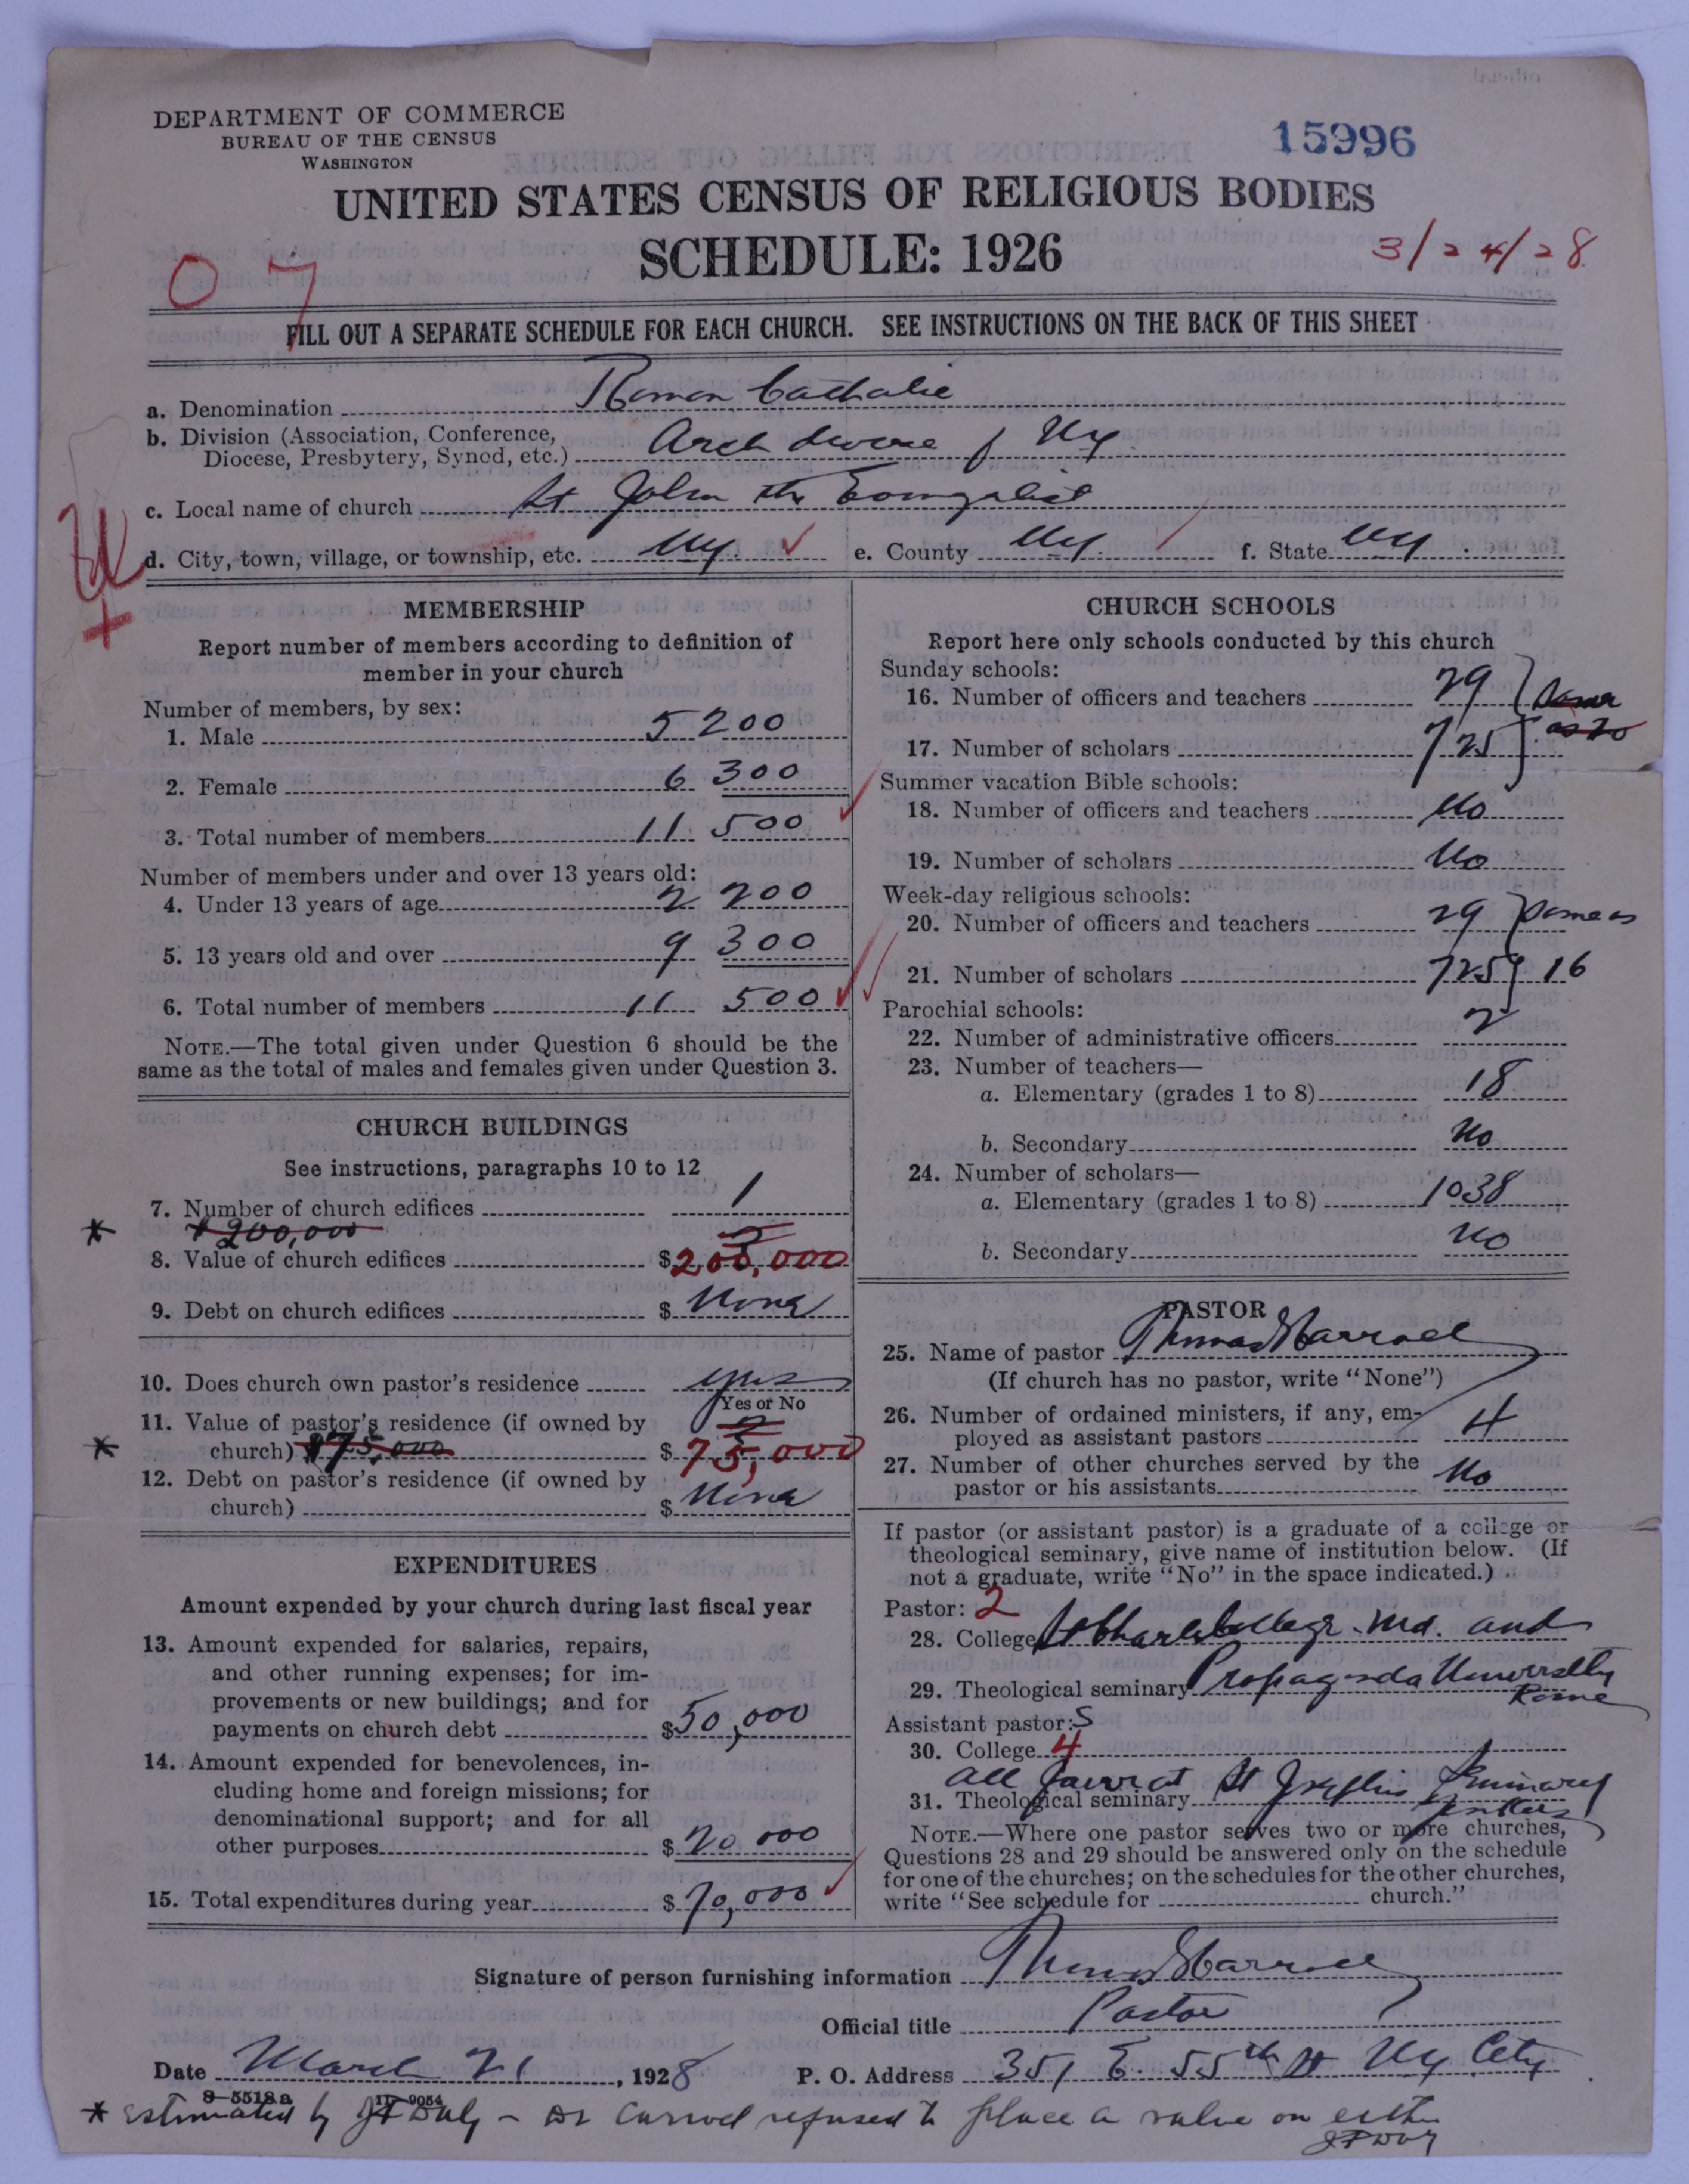 DEPARTMENT OF COMMERCE
BUREAU OF THE CENSUS
WASHINGTON
15996
UNITED STATES CENSUS OF RELIGIOUS BODIES
SCHEDULE: 1926
3/24/28
07
FILL OUT A SEPARATE SCHEDULE FOR EACH CHURCH. SEE INSTRUCTIONS ON THE BACK OF THIS SHEET
a. Denomination Roman Catholic
b. Division (Association, Conference,
Diocese, Presbytery, Synod, etc.) Archdiocese of Ny.
c. Local name of church St John the Evangelist
d. City, town, village, or township, etc. Ny. e. County Ny. f. State Ny.
MEMBERSHIP
Report number of members according to definition of
member in your church
Number of members, by sex:
1. Male 5 200
2. Female 6 300
3. Total number of members 11 500
Number of members under and over 13 years old:
4. Under 13 years of age 2 200
5. 13 years old and over 9 300
6. Total number of members 11 500
NOTE.—The total given under Question 6 should be the
same as the total of males and females given under Question 3.
CHURCH BUILDINGS
See instructions, paragraphs 10 to 12
7. Number of church edifices 1
* $200,000
8. Value of church edifices $200,000
9. Debt on church edifices $ None
10. Does church own pastor's residence yes
Yes or No
11. Value of pastor's residence (if owned by
* church) $75,000 $75,000
12. Debt on pastor's residence (if owned by
church) $ None
EXPENDITURES
Amount expended by your church during last fiscal year
13. Amount expended for salaries, repairs,
and other running expenses; for im-
provements or new buildings; and for
payments on church debt $50,000
14. Amount expended for benevolences, in-
cluding home and foreign missions; for
denominational support; and for all
other purposes $20,000
15. Total expenditures during year $70,000
CHURCH SCHOOLS
Report here only schools conducted by this church
Sunday schools:
16. Number of officers and teachers 29 Same
as 20
17. Number of scholars 725
Summer vacation Bible schools:
18. Number of officers and teachers No
19. Number of scholars No
Week-day religious schools:
20. Number of officers and teachers 29 Same as
21. Number of scholars 725 16
Parochial schools:
22. Number of administrative officers 2
23. Number of teachers—
a. Elementary (grades 1 to 8) 18
b. Secondary No
24. Number of scholars—
a. Elementary (grades 1 to 8) 1038
b. Secondary No
PASTOR
25. Name of pastor Thomas Carroll
(If church has no pastor, write "None")
26. Number of ordained ministers, if any, em-
ployed as assistant pastors 4
27. Number of other churches served by the
pastor or his assistants No
If pastor (or assistant pastor) is a graduate of a college or
theological seminary, give name of institution below. (If
not a graduate, write "No" in the space indicated.)
Pastor: 2
28. College St Charles College. Md. and
29. Theological seminary Propaganda University
Rome
Assistant pastor: S
30. College 4
All four at St Joseph's Seminary
31. Theological seminary Yonkers
NOTE.—Where one pastor serves two or more churches,
Questions 28 and 29 should be answered only on the schedule
for one of the churches; on the schedules for the other churches,
write "See schedule for church."
Signature of person furnishing information Thomas Carroll
Official title Pastor
Date March 21, 1928 P. O. Address 351 E. 55th St Ny City
8—5518a 11—9054
* Estimated by JF Daly – Dr Carroll refused to place a value on either
JF Daly